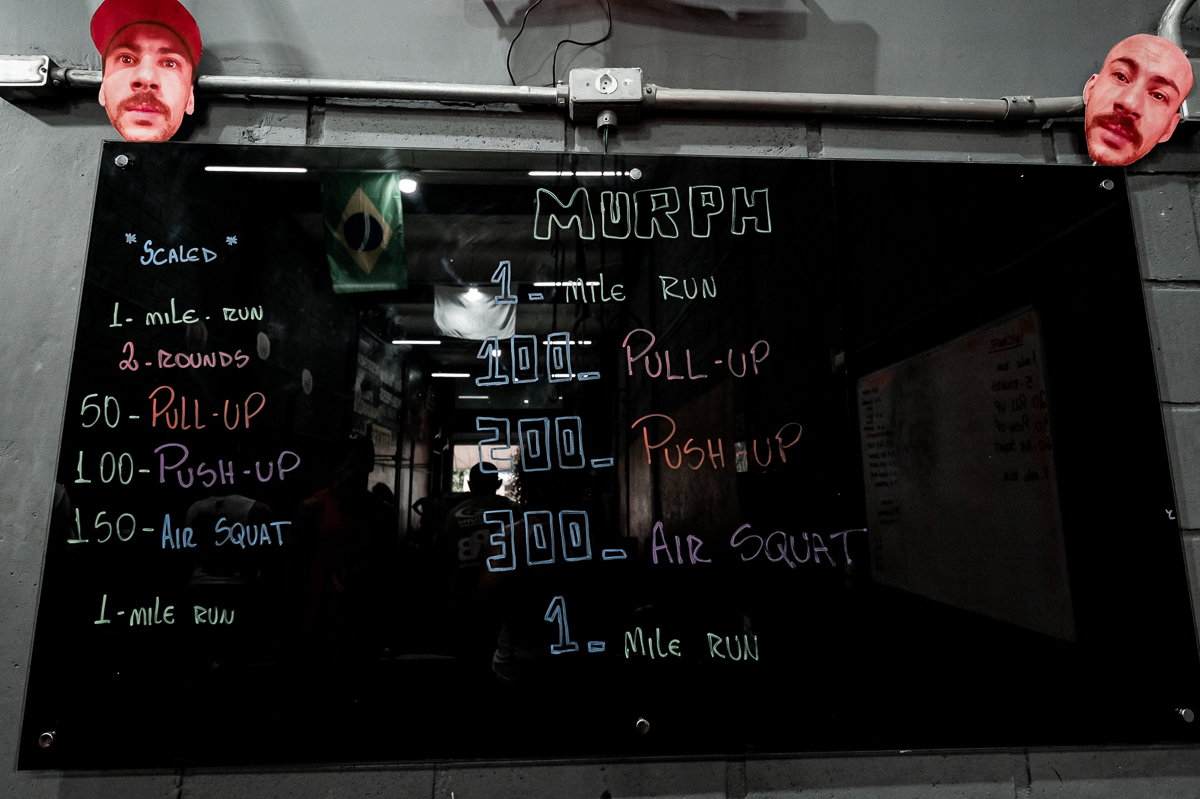 MURPH
1 - MILE RUN
100 - PULL-UP
200 - PUSH-UP
300 - AIR SQUAT
1 - MILE RUN
*SCALED*
1 - MILE - RUN
2 - ROUNDS
50 - PULL-UP
100 - PUSH-UP
150 - AIR SQUAT
1 - MILE RUN